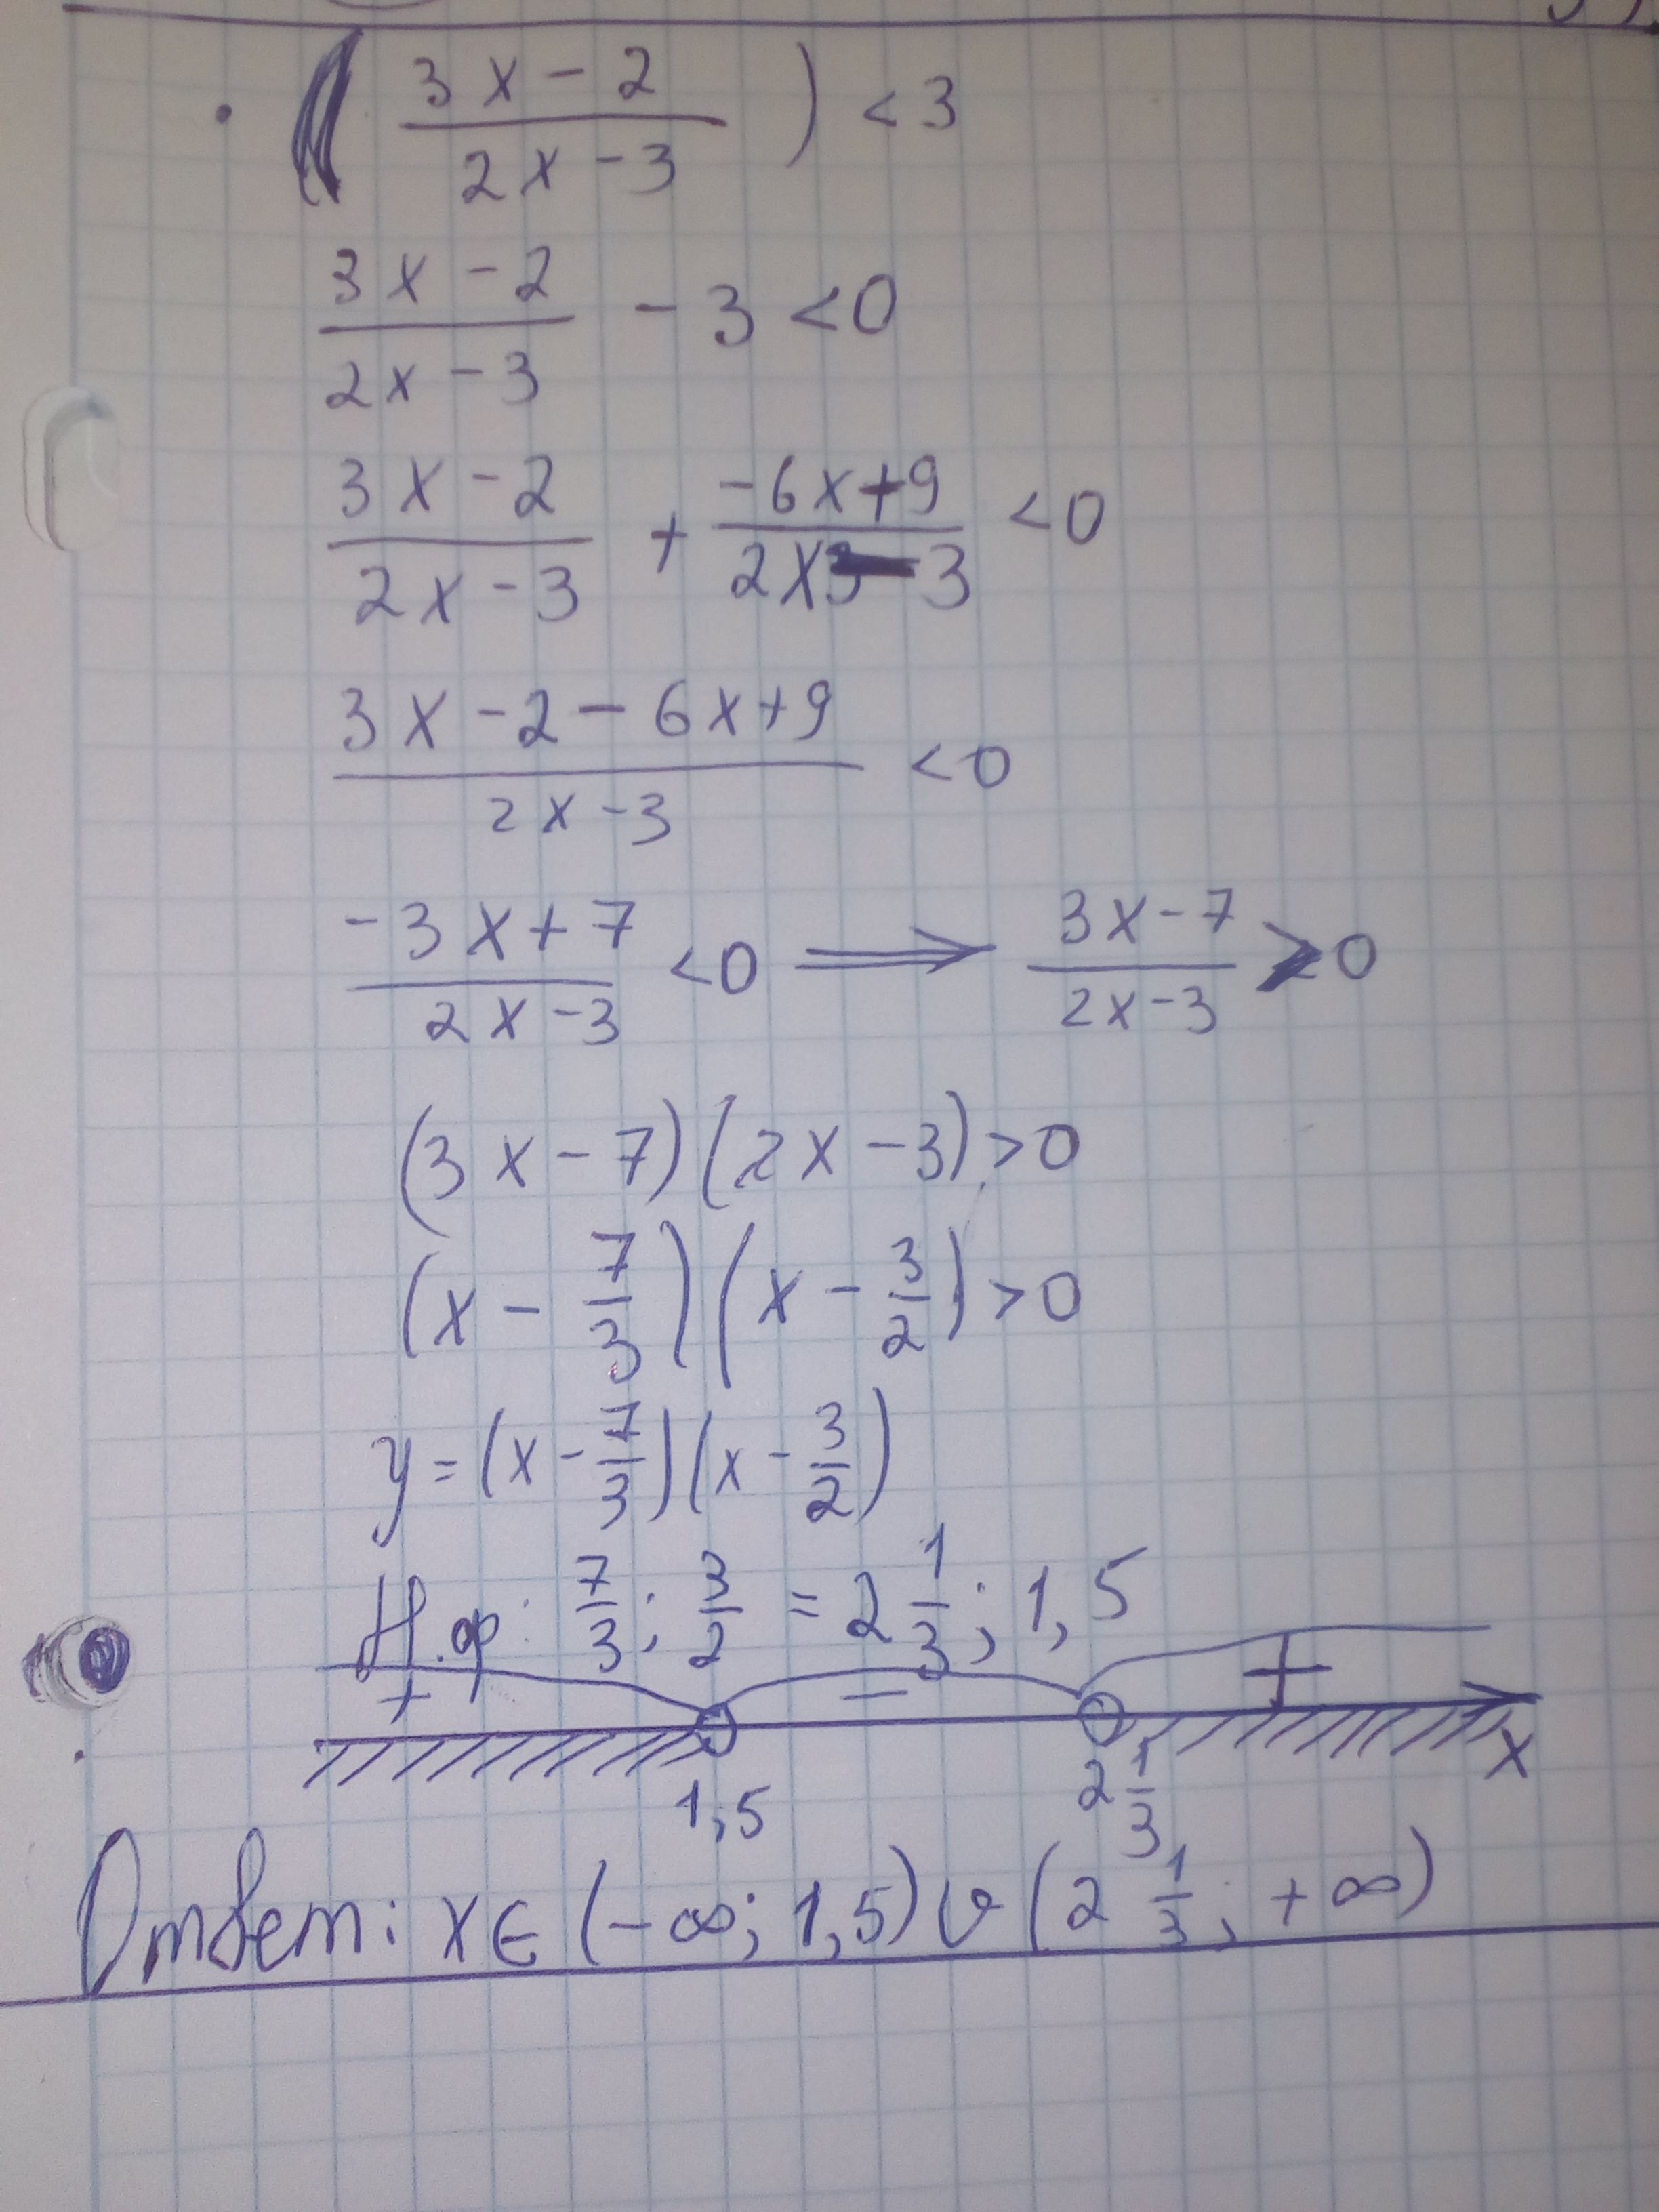 (3x-2)/(2x-3)) < 3
(3x-2)/(2x-3) - 3 < 0
(3x-2)/(2x-3) + (-6x+9)/(2x-3) < 0
(3x-2-6x+9)/(2x-3) < 0
(-3x+7)/(2x-3) < 0 ⟹ (3x-7)/(2x-3) > 0
(3x-7)(2x-3) > 0
(x - 7/3)(x - 3/2) > 0
y = (x - 7/3)(x - 3/2)
Н.ф: 7/3; 3/2 = 2 1/3; 1,5
+ − +
x
1,5 2 1/3
Ответ: x∈(-∞; 1,5)∪(2 1/3; +∞)